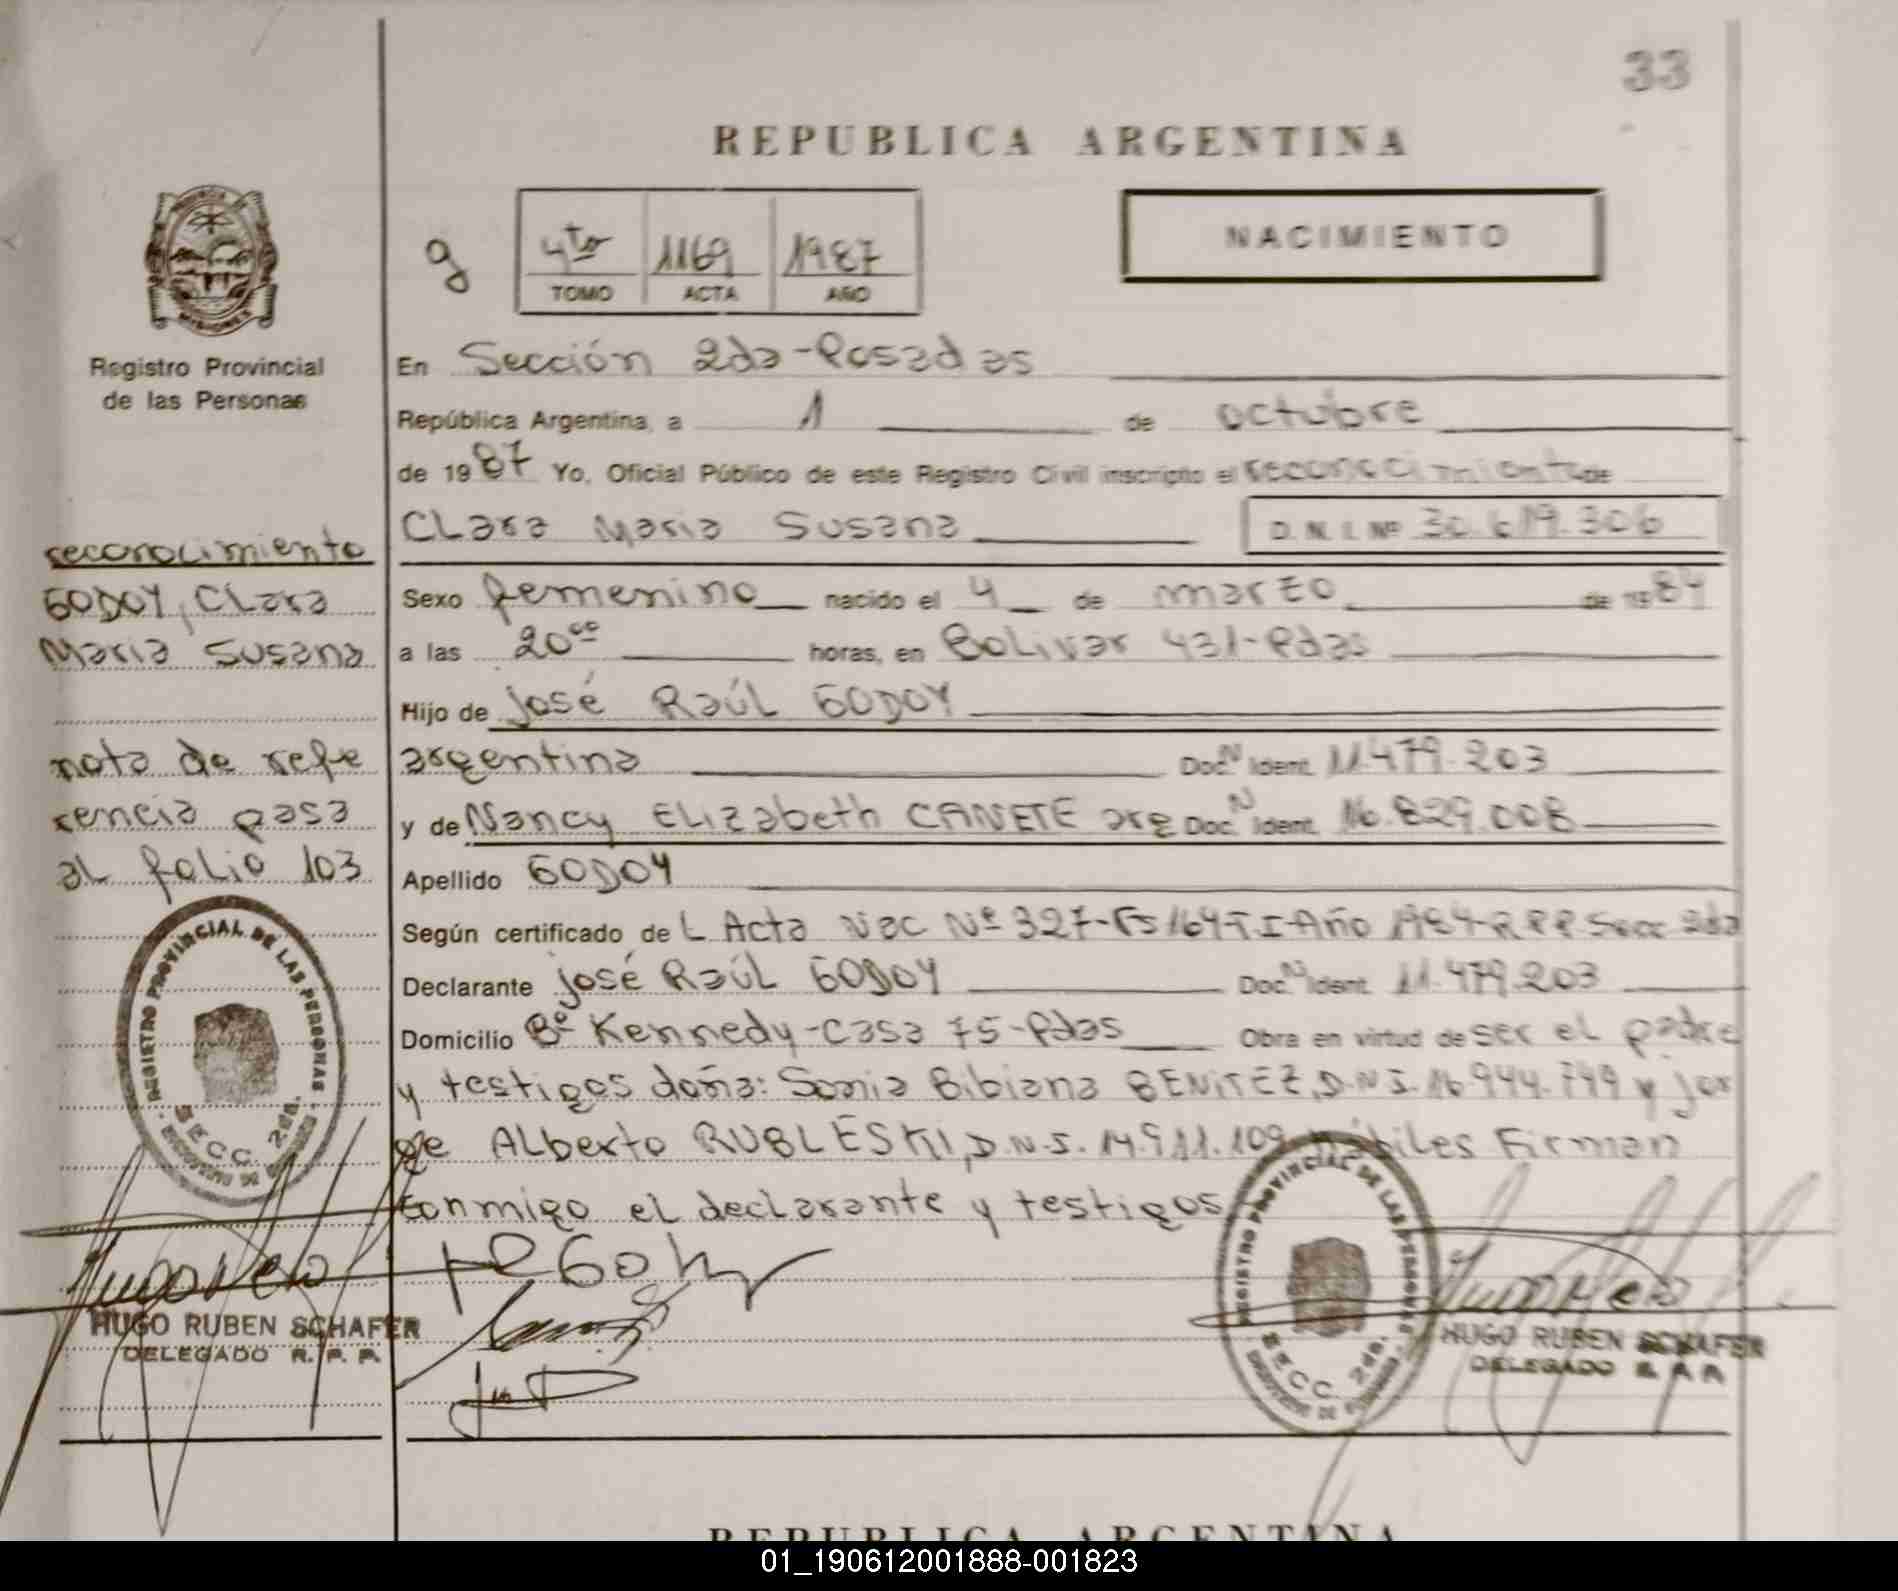 33
REPUBLICA ARGENTINA
g
4to 1169 1987
TOMO ACTA AÑO
NACIMIENTO
MISIONES
Registro Provincial
de las Personas
En Sección 2da-Posadas
República Argentina, a 1 de octubre
de 1987 Yo, Oficial Público de este Registro Civil inscripto el reconocimiento de
CLara Maria Susana D. N. I. Nº 30.619.306
Sexo femenino nacido el 4 de marzo de 1984
a las 20 oo horas, en BoLivar 431-Pdas
Hijo de josé RaúL GODOY
argentina Doc. N Ident. 11.479.203
y de Nancy ELizabeth CANETE arg Doc. N Ident. 16.829.008
Apellido GODOY
Según certificado de L Acta Nac Nº 327-Fs 164-T I-Año 1984-R P P Secc 2da
Declarante josé RaúL GODOY Doc. N Ident. 11.479.203
Domicilio Bº Kennedy-casa 75-Pdas Obra en virtud de ser el padre
y testigos doña: Sonia Bibiana BENITEZ, D.N.I. 16.944.749 y jor
ge ALberto RUBLESKI, D.N.I. 14.911.109 hábiles Firman
conmigo el declarante y testigos
reconocimiento
GODOY, CLara
Maria Susana
nota de refe
rencia pasa
aL foLio 103
REGISTRO PROVINCIAL DE LAS PERSONAS
SECC. 2da.
HUGO RUBEN SCHAFER
DELEGADO R. P. P.
REGISTRO PROVINCIAL DE LAS PERSONAS
SECC. 2da.
HUGO RUBEN SCHAFER
DELEGADO
REPUBLICA ARGENTINA
01_190612001888-001823